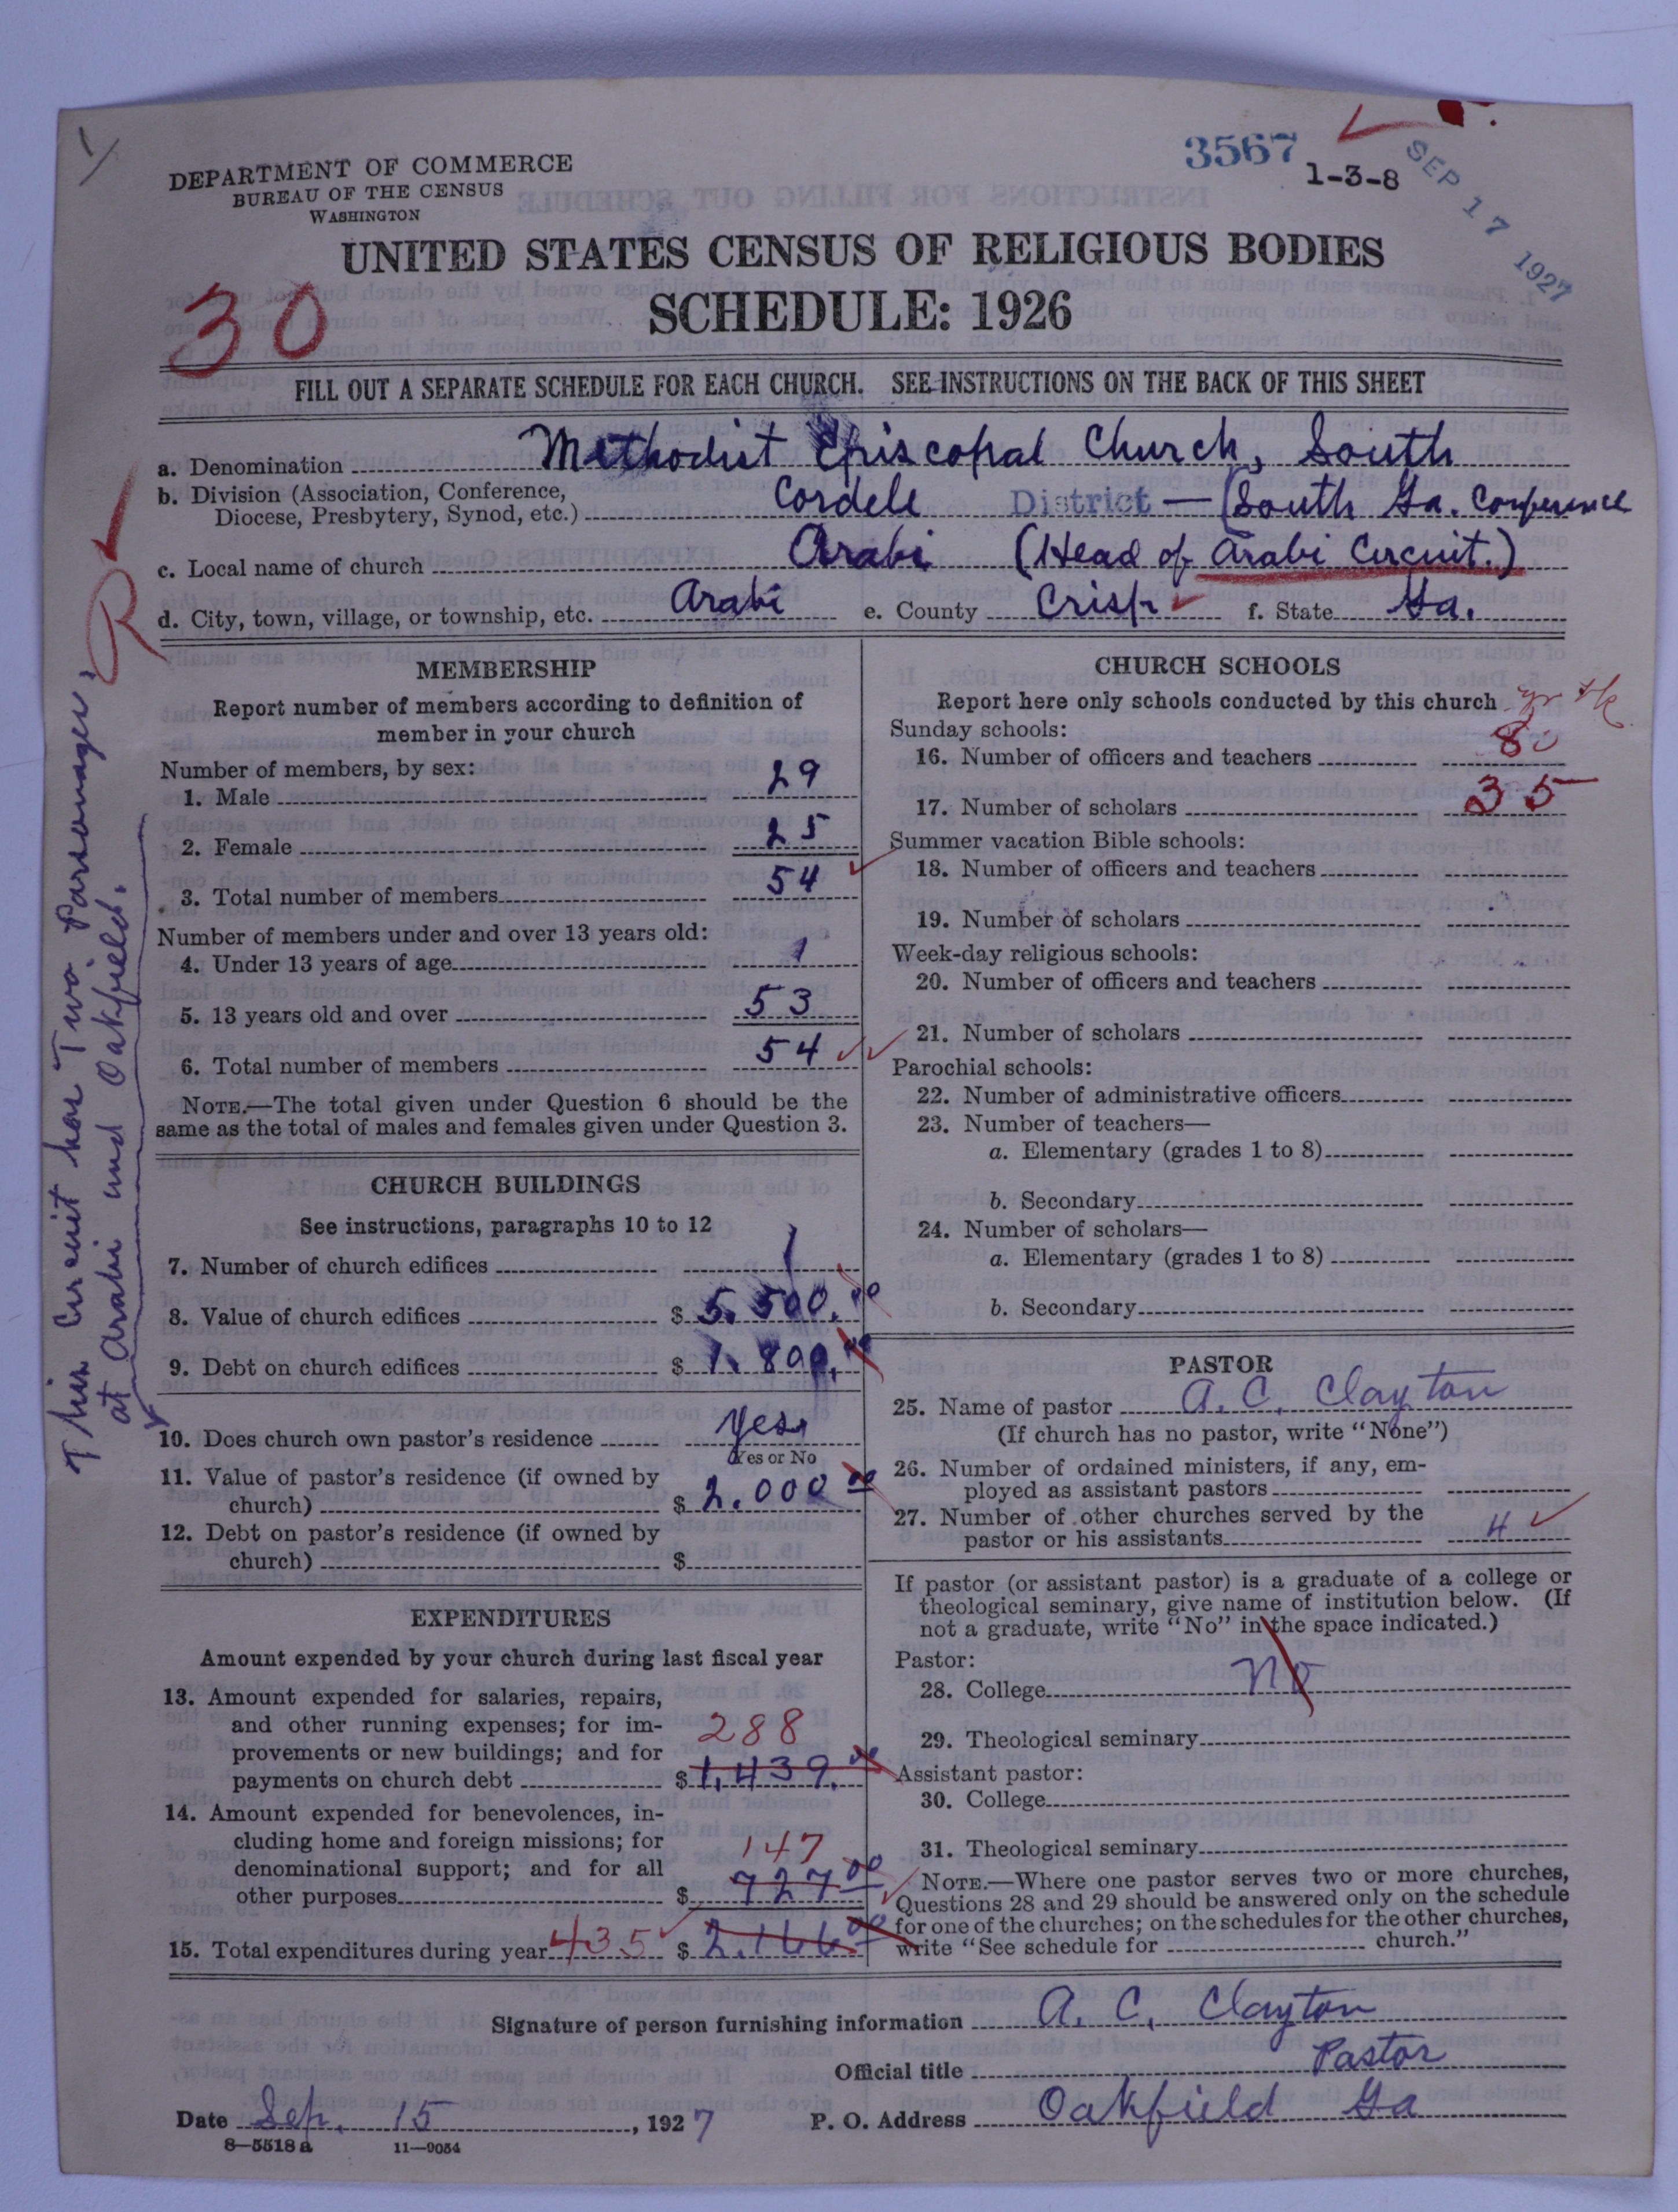 3567
1-3-8
SEP 17 1927
DEPARTMENT OF COMMERCE
BUREAU OF THE CENSUS
WASHINGTON
UNITED STATES CENSUS OF RELIGIOUS BODIES
SCHEDULE: 1926
30
FILL OUT A SEPARATE SCHEDULE FOR EACH CHURCH. SEE INSTRUCTIONS ON THE BACK OF THIS SHEET
a. Denomination Methodist Episcopal Church, South
b. Division (Association, Conference, Diocese, Presbytery, Synod, etc.) Cordele District — (South Ga. Conference
c. Local name of church Arabi (Head of Arabi Circuit.)
d. City, town, village, or township, etc. Arabi e. County Crisp f. State Ga.
This Circuit has Two Parsonages,
at Arabi and Oakfield.
MEMBERSHIP
Report number of members according to definition of
member in your church
Number of members, by sex:
1. Male 29
2. Female 25
3. Total number of members 54
Number of members under and over 13 years old:
4. Under 13 years of age 1
5. 13 years old and over 53
6. Total number of members 54
NOTE.—The total given under Question 6 should be the
same as the total of males and females given under Question 3.
CHURCH BUILDINGS
See instructions, paragraphs 10 to 12
7. Number of church edifices 1
8. Value of church edifices $ 5.500.00
9. Debt on church edifices $ 1.800.00
10. Does church own pastor's residence Yes
Yes or No
11. Value of pastor's residence (if owned by
church) $ 2.000 00
12. Debt on pastor's residence (if owned by
church) $
EXPENDITURES
Amount expended by your church during last fiscal year
13. Amount expended for salaries, repairs,
and other running expenses; for im-
provements or new buildings; and for 288
payments on church debt $ 1,439.00
14. Amount expended for benevolences, in-
cluding home and foreign missions; for 147
denominational support; and for all
other purposes $ 727 00
15. Total expenditures during year 435 $ 2.166 00
CHURCH SCHOOLS
Report here only schools conducted by this church
Sunday schools:
16. Number of officers and teachers 8
17. Number of scholars 35
Summer vacation Bible schools:
18. Number of officers and teachers
19. Number of scholars
Week-day religious schools:
20. Number of officers and teachers
21. Number of scholars
Parochial schools:
22. Number of administrative officers
23. Number of teachers—
a. Elementary (grades 1 to 8)
b. Secondary
24. Number of scholars—
a. Elementary (grades 1 to 8)
b. Secondary
PASTOR
25. Name of pastor A. C. Clayton
(If church has no pastor, write "None")
26. Number of ordained ministers, if any, em-
ployed as assistant pastors
27. Number of other churches served by the
pastor or his assistants 4
If pastor (or assistant pastor) is a graduate of a college or
theological seminary, give name of institution below. (If
not a graduate, write "No" in the space indicated.)
Pastor:
28. College No
29. Theological seminary
Assistant pastor:
30. College
31. Theological seminary
NOTE.—Where one pastor serves two or more churches,
Questions 28 and 29 should be answered only on the schedule
for one of the churches; on the schedules for the other churches,
write "See schedule for church."
Signature of person furnishing information A. C. Clayton
Official title Pastor
Date Sep. 15, 1927 P. O. Address Oakfield Ga
8—5518a 11—9054